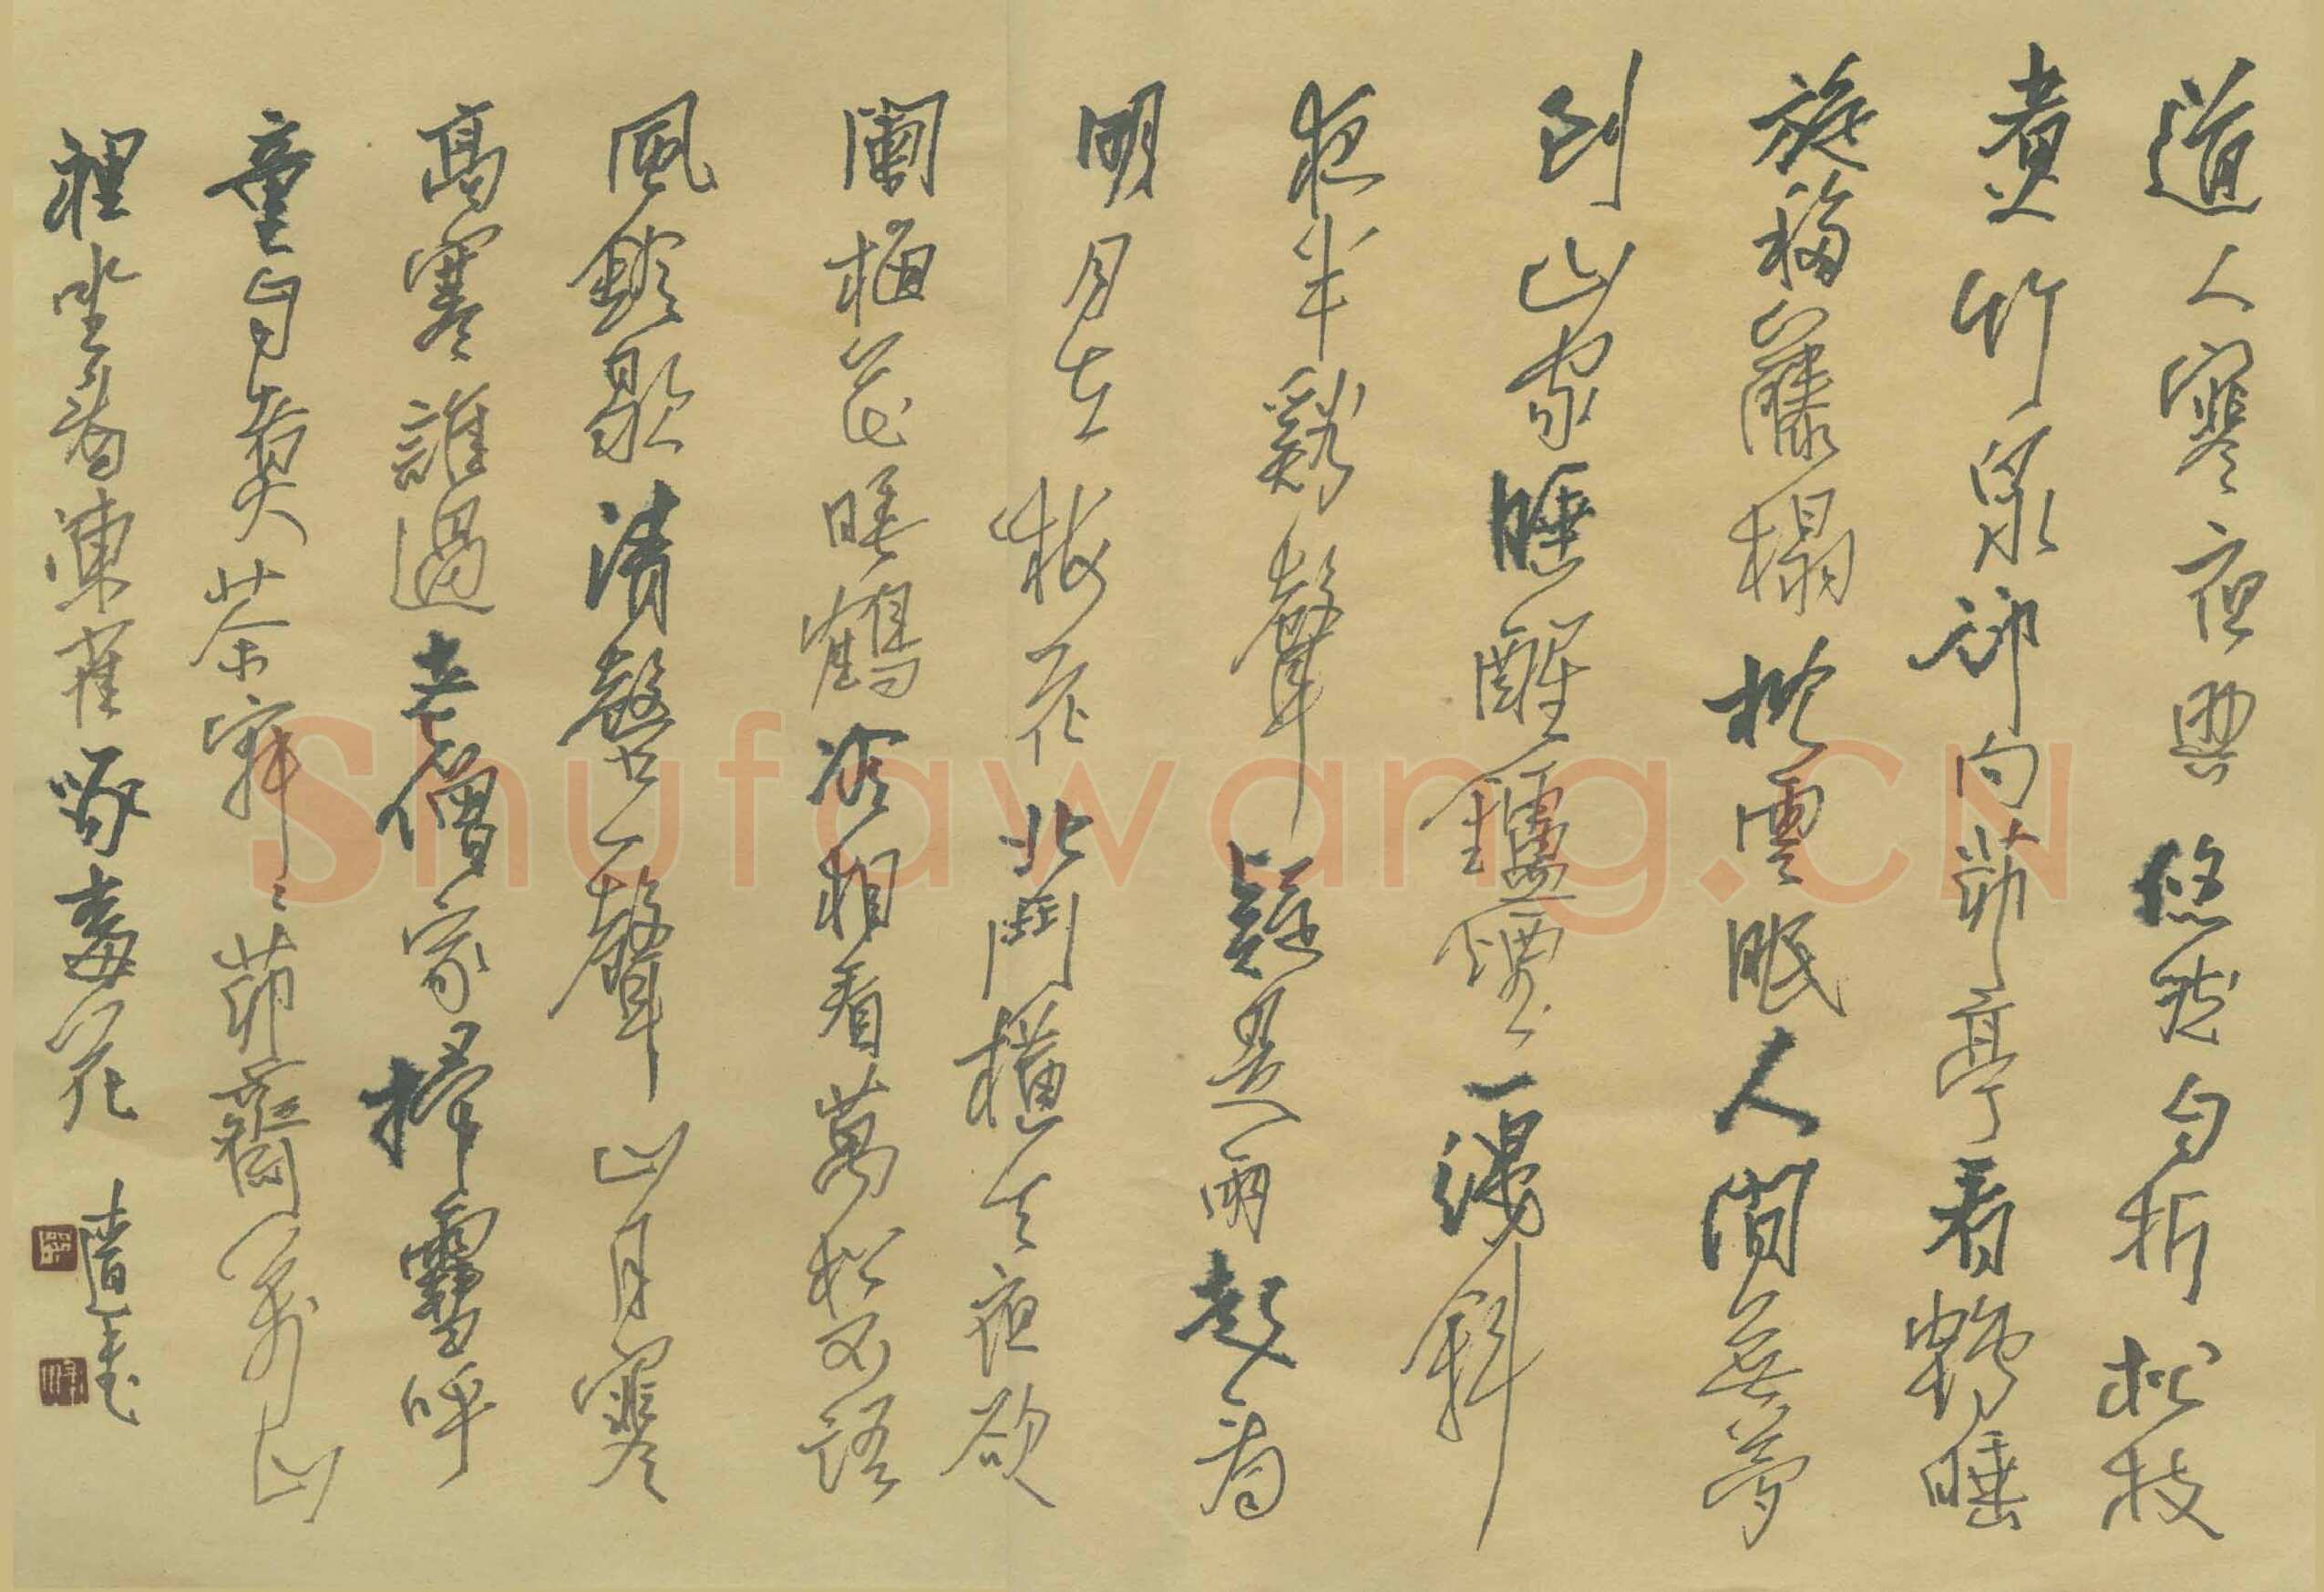 道人寒夜興悠然自折松枝
煮竹泉卻向茆亭看鶴睡
旋移藤榻枕雲眠人間無夢
到山家睡醒鑪煙一縷斜
夜半谿聲疑是雨起看
明月在梅花北鬥橫天夜欲
闌梅花睡鶴冷相看萬松不語
風鈴歇清磬一聲山月寒
高寒誰過老僧家掃雪呼
童自煑茶寂寂茆齋萬山
裡坐看凍雀啄梅花
Shufawang.CN